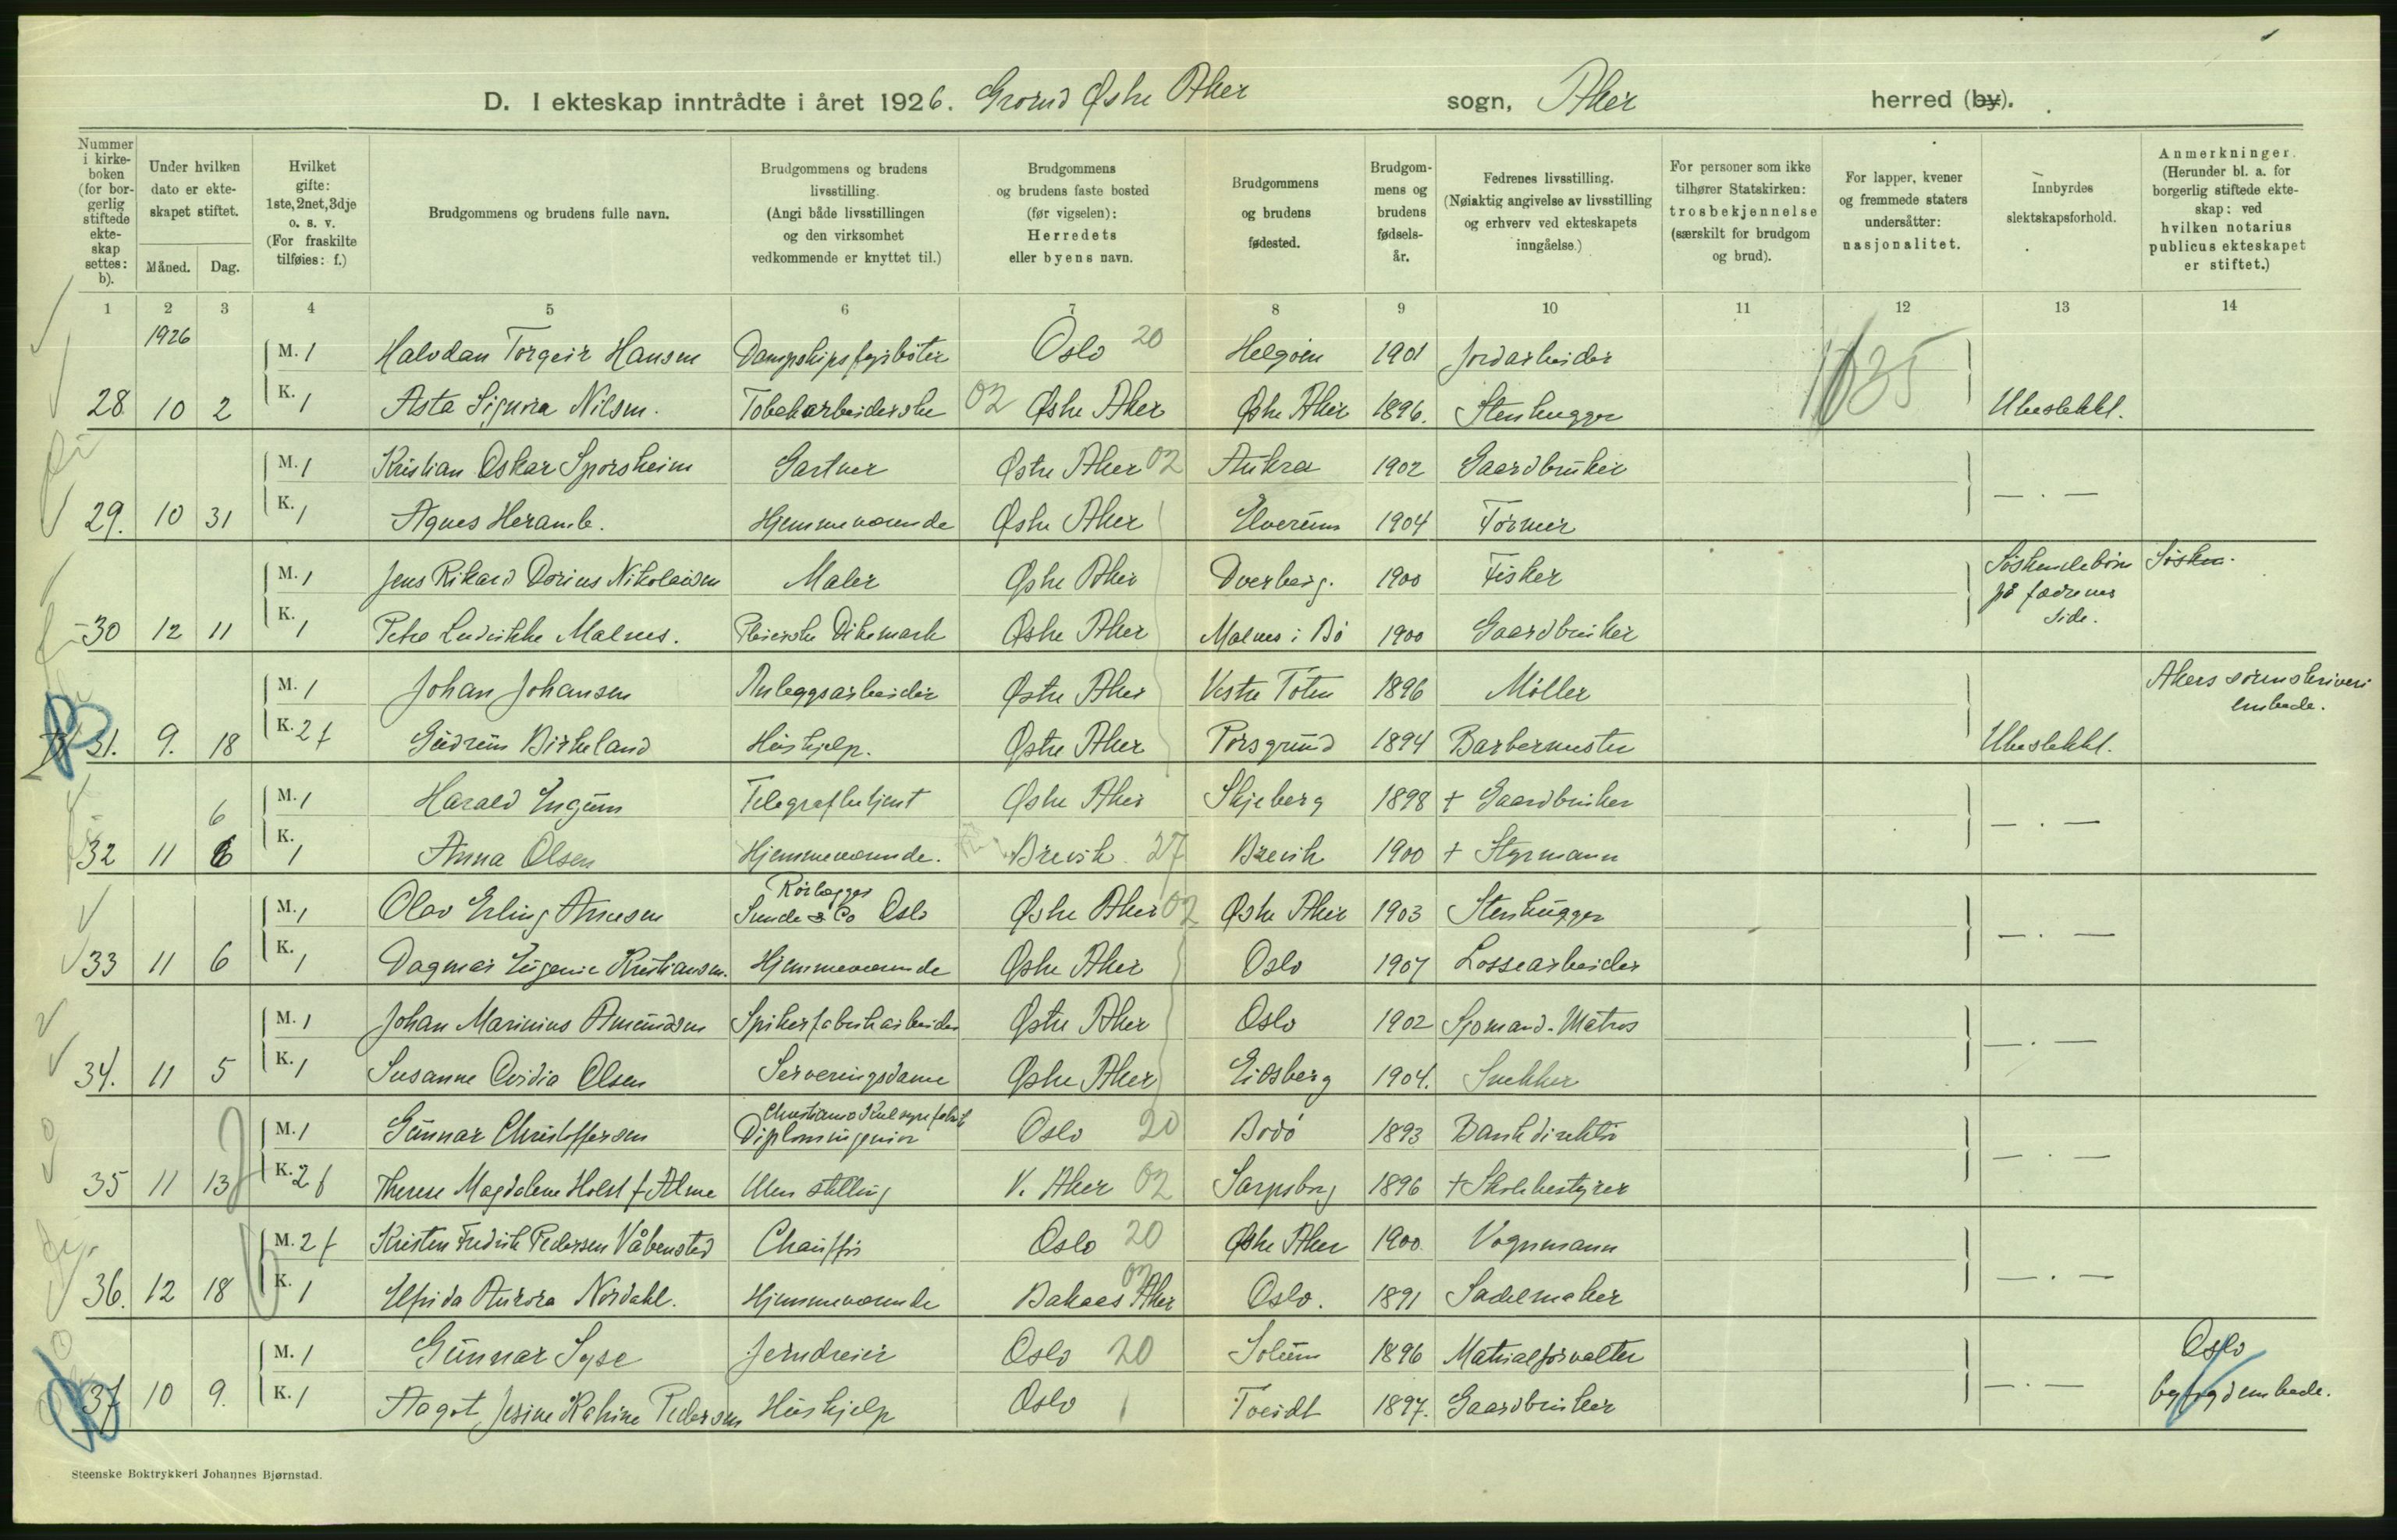 D. I ekteskap inntrådte i året 1926. Grorud Østre Aker sogn, Aker herred (by).
Nummer i kirkeboken (for borgerlig stiftede ekteskap settes: b).
Under hvilken dato er ekteskapet stiftet.
Måned. Dag.
Hvilket gifte: 1ste, 2net, 3dje o. s. v. (For fraskilte tilføies: f.)
Brudgommens og brudens fulle navn.
Brudgommens og brudens livsstilling. (Angi både livsstillingen og den virksomhet vedkommende er knyttet til.)
Brudgommens og brudens faste bosted (før vigselen): Herredets eller byens navn.
Brudgommens og brudens fødested.
Brudgommens og brudens fødselsår.
Fedrenes livsstilling. (Nøiaktig angivelse av livsstilling og erhverv ved ekteskapets inngåelse.)
For personer som ikke tilhører Statskirken: trosbekjennelse (særskilt for brudgom og brud).
For lapper, kvener og fremmede staters undersåtter: nasjonalitet.
Innbyrdes slektskapsforhold.
Anmerkninger. (Herunder bl. a. for borgerlig stiftede ekteskap: ved hvilken notarius publicus ekteskapet er stiftet.)
1 2 3 4 5 6 7 8 9 10 11 12 13 14
1926
M. 1 Halvdan Torgeir Hansen Dampskipsfyrbøter Oslo 20 Helgøen 1901 Jordarbeider 1635
28 10 2 K. 1 Asta Signora Nilsen. Tobakarbeiderske 02 Østre Aker Østre Aker 1896. Stenhugger Ubeslektet.
M. 1 Kristian Oskar Sporsheim Gartner Østre Aker 02 Aukra 1902 Gaardbruker
29. 10 31 K. 1 Agnes Heramb. Hjemmeværende Østre Aker Elverum 1904 Former — . —
M. 1 Jens Rikard Dorius Nikolaisen Maler Østre Aker Dverberg. 1900 Fisker Søskendebørn på fædrenes side. Søsken.
30 12 11 K. 1 Petra Ludvikke Malnes. Pleierske Dikemark Østre Aker Malnes i Bø 1900 Gaardbruker
M. 1 Johan Johansen Anleggsarbeider Østre Aker Vestre Toten 1896 Møller Akers sorenskriverembede.
31. 9. 18 K. 2 f Gudrun Birkeland Hushjelp. Østre Aker Porsgrund 1894 Barbermester Ubeslektet.
6 M. 1 Harald Ingum Telegrafbetjent Østre Aker Skjeberg 1898 + Gaardbruker
32 11 6 K. 1 Anna Olsen Hjemmeværende. Brevik 27 Brevik 1900 + Styrmann — . —
M. 1 Olav Erling Arnesen Rørlegger Sunde & Co Oslo Østre Aker 02 Østre Aker 1903 Stenhugger
33 11 6 K. 1 Dagmar Eugenie Kristiansen. Hjemmeværende Østre Aker Oslo 1907 Lossearbeider — . —
M. 1 Johan Marinius Amundsen Spikerfabrikarbeider Østre Aker Oslo 1902 Sjømand-Matros
34. 11 5 K. 1 Susanne Ovidia Olsen Serveringsdame Østre Aker Eidsberg 1904. Snekker — . —
M. 1 Gunnar Christoffersen Christiania Kulsyrefabrik Diplomingeniør Oslo 20 Bodø 1893 Bankdirektør
35 11 13 K. 2 f Therese Magdalene Holst f. Alme Uten stilling V. Aker 02 Sarpsborg 1896 + Skolebestyrer — . —
M. 2 f Kristen Fredrik Pedersen Våbensted Chauffør Oslo 20 Østre Aker 1900 Vognmann
36. 12 18 K. 1 Elfrida Aurora Nordahl. Hjemmeværende Bakaas Aker 02 Oslo. 1891 Sadelmaker — . —
M. 1 Gunnar Syse Jerndreier Oslo 20 Solum 1896 Matrialforvalter Oslo
37 10 9. K. 1 Aagot Jesine Katrine Pedersen Hushjelp Oslo Tveidt 1897. Gaardbruker — . — byfogdembede.
Steenske Boktrykkeri Johannes Bjørnstad.